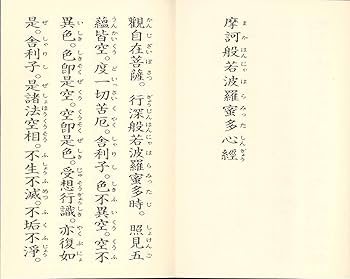 摩訶般若波羅蜜多心経
観自在菩薩。行深般若波羅蜜多時。照見五
蘊皆空。度一切苦厄。舎利子。色不異空。空不
異色。色即是空。空即是色。受想行識。亦復如
是。舎利子。是諸法空相。不生不滅。不垢不浄。